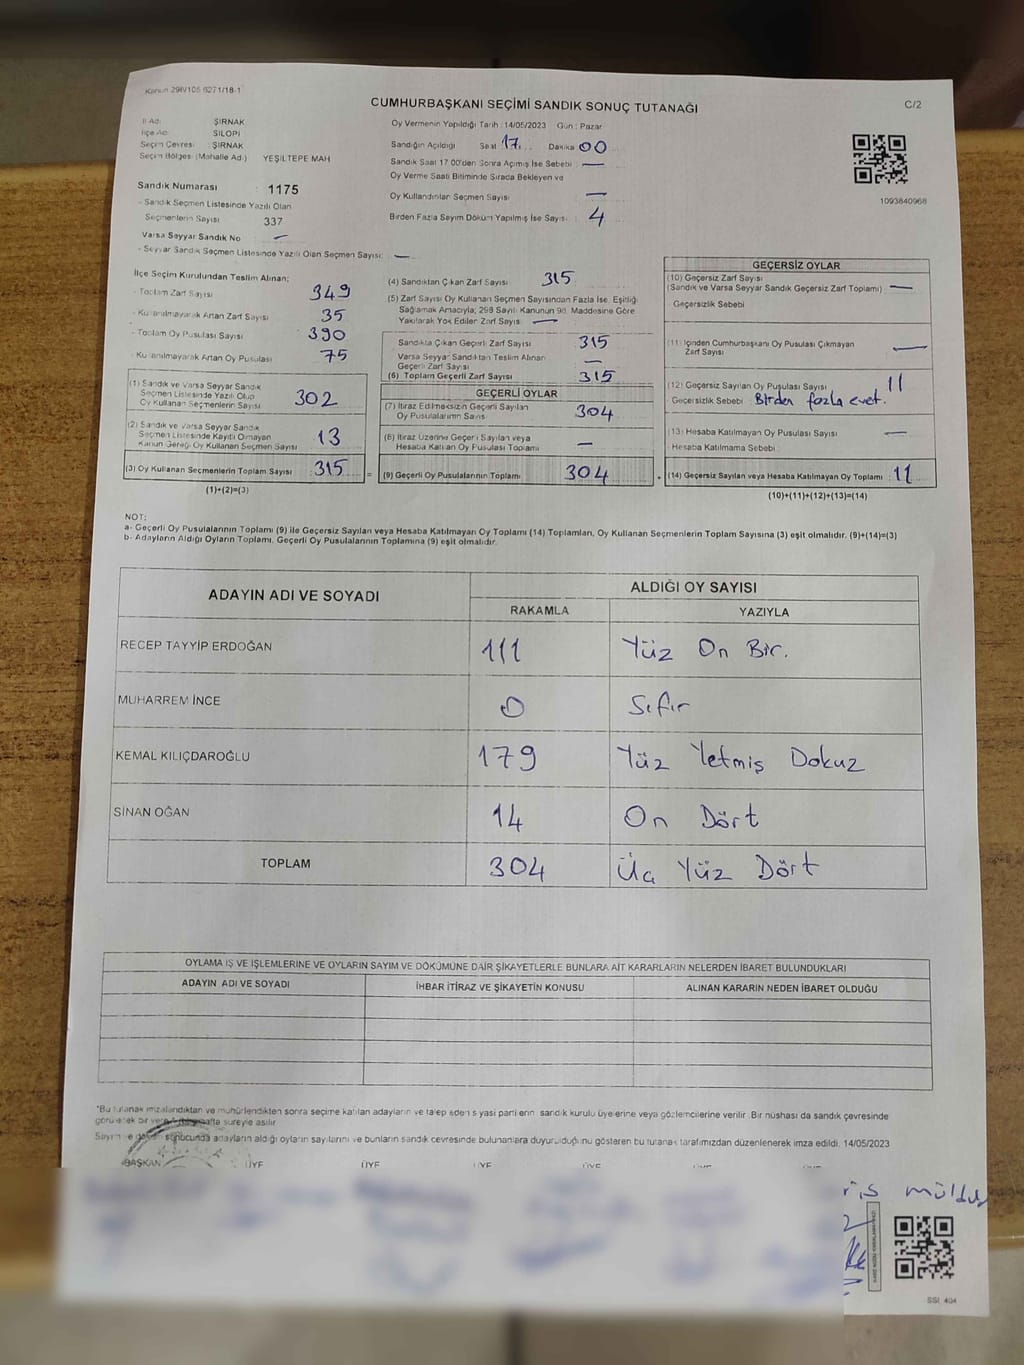 Kanun 298/105 6271/18-1
CUMHURBAŞKANI SEÇİMİ SANDIK SONUÇ TUTANAĞI
C/2
İl Adı: ŞIRNAK
İlçe Adı: SİLOPİ
Seçim Çevresi: ŞIRNAK
Seçim Bölgesi (Mahalle Ad.) YEŞİLTEPE MAH
Sandık Numarası : 1175
- Sandık Seçmen Listesinde Yazılı Olan
Seçmenlerin Sayısı 337
Varsa Seyyar Sandık No —
- Seyyar Sandık Seçmen Listesinde Yazılı Olan Seçmen Sayısı: —
Oy Vermenin Yapıldığı Tarih : 14/05/2023 Gün : Pazar
Sandığın Açıldığı Saat 17 Dakika 00
Sandık Saat 17.00'den Sonra Açılmış İse Sebebi : —
Oy Verme Saati Bitiminde Sırada Bekleyen ve
Oy Kullandırılan Seçmen Sayısı —
Birden Fazla Sayım Döküm Yapılmış İse Sayısı: 4
1093840968
İlçe Seçim Kurulundan Teslim Alınan;
- Toplam Zarf Sayısı 349
- Kullanılmayarak Artan Zarf Sayısı 35
- Toplam Oy Pusulası Sayısı 390
- Kullanılmayarak Artan Oy Pusulası 75
(1) Sandık ve Varsa Seyyar Sandık
Seçmen Listesinde Yazılı Olup
Oy Kullanan Seçmenlerin Sayısı 302
(2) Sandık ve Varsa Seyyar Sandık
Seçmen Listesinde Kayıtlı Olmayan
Kanun Gereği Oy Kullanan Seçmen Sayısı 13
(3) Oy Kullanan Seçmenlerin Toplam Sayısı 315 =
(1)+(2)=(3)
(4) Sandıktan Çıkan Zarf Sayısı 315
(5) Zarf Sayısı Oy Kullanan Seçmen Sayısından Fazla İse, Eşitliği
Sağlamak Amacıyla; 298 Sayılı Kanunun 98. Maddesine Göre
Yakılarak Yok Edilen Zarf Sayısı —
Sandıkta Çıkan Geçerli Zarf Sayısı 315
Varsa Seyyar Sandıktan Teslim Alınan
Geçerli Zarf Sayısı —
(6) Toplam Geçerli Zarf Sayısı 315
GEÇERLİ OYLAR
(7) İtiraz Edilmeksizin Geçerli Sayılan
Oy Pusulalarının Sayısı 304
(8) İtiraz Üzerine Geçerli Sayılan veya
Hesaba Katılan Oy Pusulası Toplamı —
(9) Geçerli Oy Pusulalarının Toplamı 304 +
GEÇERSİZ OYLAR
(10) Geçersiz Zarf Sayısı
(Sandık ve Varsa Seyyar Sandık Geçersiz Zarf Toplamı) : —
Geçersizlik Sebebi
(11) İçinden Cumhurbaşkanı Oy Pusulası Çıkmayan
Zarf Sayısı —
(12) Geçersiz Sayılan Oy Pusulası Sayısı 11
Geçersizlik Sebebi Birden fazla evet.
(13) Hesaba Katılmayan Oy Pusulası Sayısı : —
Hesaba Katılmama Sebebi :
(14) Geçersiz Sayılan veya Hesaba Katılmayan Oy Toplamı : 11
(10)+(11)+(12)+(13)=(14)
NOT:
a- Geçerli Oy Pusulalarının Toplamı (9) ile Geçersiz Sayılan veya Hesaba Katılmayan Oy Toplamı (14) Toplamları, Oy Kullanan Seçmenlerin Toplam Sayısına (3) eşit olmalıdır. (9)+(14)=(3)
b- Adayların Aldığı Oyların Toplamı, Geçerli Oy Pusulalarının Toplamına (9) eşit olmalıdır.
ADAYIN ADI VE SOYADI
ALDIĞI OY SAYISI
RAKAMLA YAZIYLA
RECEP TAYYİP ERDOĞAN 111 Yüz On Bir.
MUHARREM İNCE 0 Sıfır
KEMAL KILIÇDAROĞLU 179 Yüz Yetmiş Dokuz
SİNAN OĞAN 14 On Dört
TOPLAM 304 Üç Yüz Dört
OYLAMA İŞ VE İŞLEMLERİNE VE OYLARIN SAYIM VE DÖKÜMÜNE DAİR ŞİKAYETLERLE BUNLARA AİT KARARLARIN NELERDEN İBARET BULUNDUKLARI
ADAYIN ADI VE SOYADI İHBAR İTİRAZ VE ŞİKAYETİN KONUSU ALINAN KARARIN NEDEN İBARET OLDUĞU
*Bu tutanak imzalandıktan ve mühürlendikten sonra seçime katılan adayların ve talep eden siyasi partilerin sandık kurulu üyelerine veya gözlemcilerine verilir. Bir nüshası da sandık çevresinde
görülecek bir yere hafta süreyle asılır
Sayım ve döküm sonucunda adayların aldığı oyların sayılarını ve bunların sandık çevresinde bulunanlara duyurulduğunu gösteren bu tutanak tarafımızdan düzenlenerek imza edildi. 14/05/2023
BAŞKAN ÜYE ÜYE ÜYE ÜYE
SSI: 404